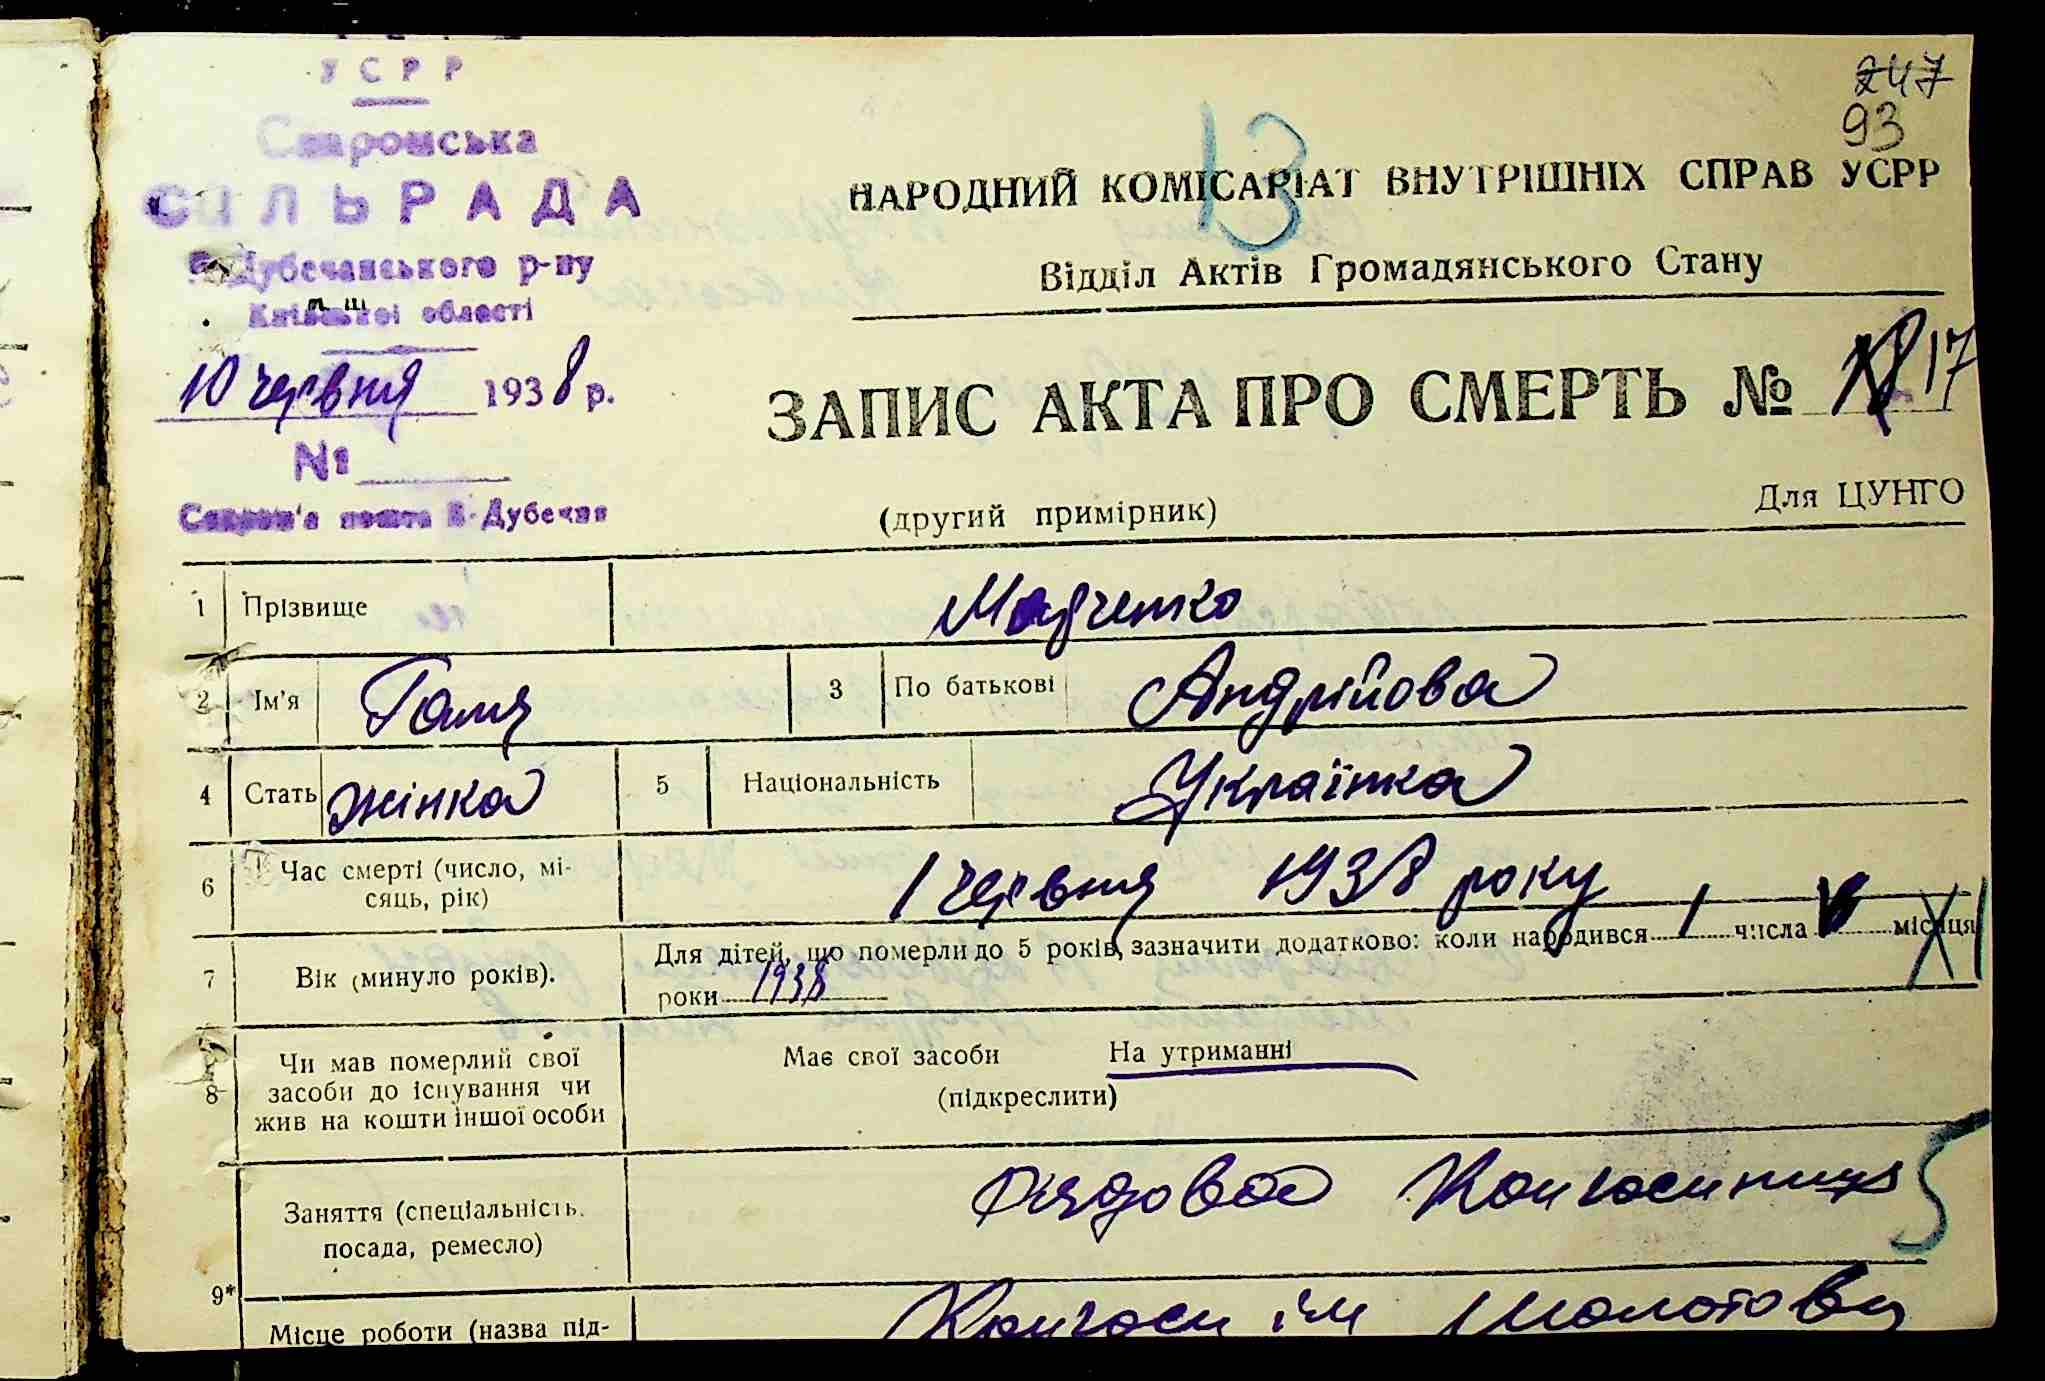 УСРР
247
93
13
Сваромська
СІЛЬРАДА
НАРОДНИЙ КОМІСАРІАТ ВНУТРІШНІХ СПРАВ УСРР
В-Дубечанського р-ну
Відділ Актів Громадянського Стану
Київської області
10 червня 1938 р.
ЗАПИС АКТА ПРО СМЕРТЬ № 17
№
(другий примірник)
Для ЦУНГО
пошта В-Дубечня
1 Прізвище
2 Ім'я Галя 3 По батькові Андрійова
4 Стать жінка 5 Національність Українка
6 Час смерті (число, мі-
сяць, рік) 1 червня 1938 року
7 Вік (минуло років). Для дітей, що померли до 5 років, зазначити додатково: коли народився 1 числа місяця
роки 1938
XI
8 Чи мав померлий свої
засоби до існування чи
жив на кошти іншої особи
Має свої засоби На утриманні
(підкреслити)
5
Заняття (спеціальність.
посада, ремесло)
Рядова Колгоспниця
9*
Місце роботи (назва під-
Колгосп ім Молотова